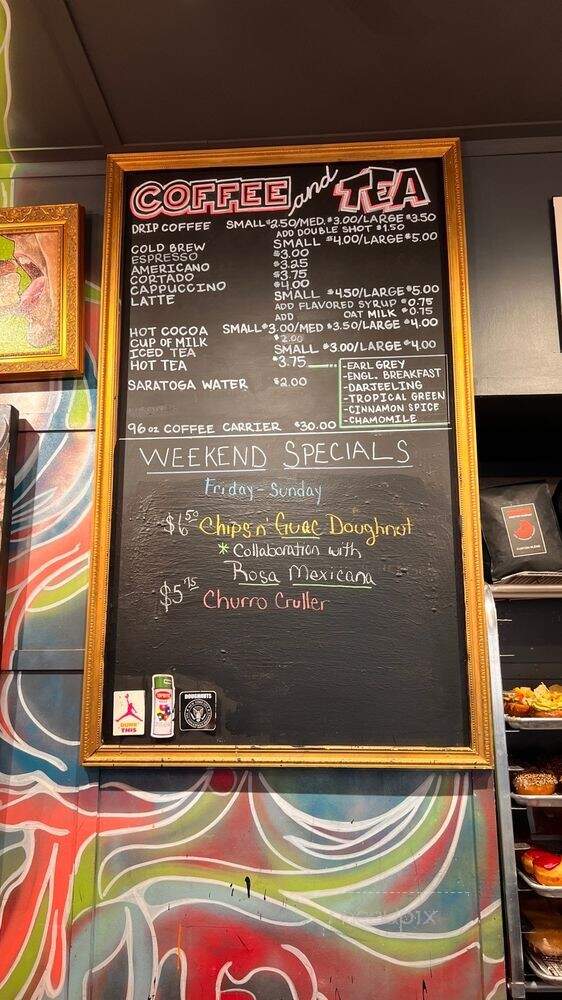 COFFEE and TEA
DRIP COFFEE SMALL $2.50/MED. $3.00/LARGE $3.50
ADD DOUBLE SHOT $1.50
COLD BREW SMALL $4.00/LARGE $5.00
ESPRESSO $3.00
AMERICANO $3.25
CORTADO $3.75
CAPPUCCINO $4.00
LATTE SMALL $4.50/LARGE $5.00
ADD FLAVORED SYRUP $0.75
ADD OAT MILK $0.75
HOT COCOA SMALL $3.00/MED $3.50/LARGE $4.00
CUP OF MILK $2.00
ICED TEA SMALL $3.00/LARGE $4.00
HOT TEA $3.75
-EARL GREY
-ENGL. BREAKFAST
-DARJEELING
-TROPICAL GREEN
-CINNAMON SPICE
-CHAMOMILE
SARATOGA WATER $2.00
96 oz COFFEE CARRIER $30.00
WEEKEND SPECIALS
Friday - Sunday
$6.50 Chips n' Guac Doughnut
* Collaboration with
Rosa Mexicana
$5.75 Churro Cruller
DUNK THIS
DOUGHNUTS